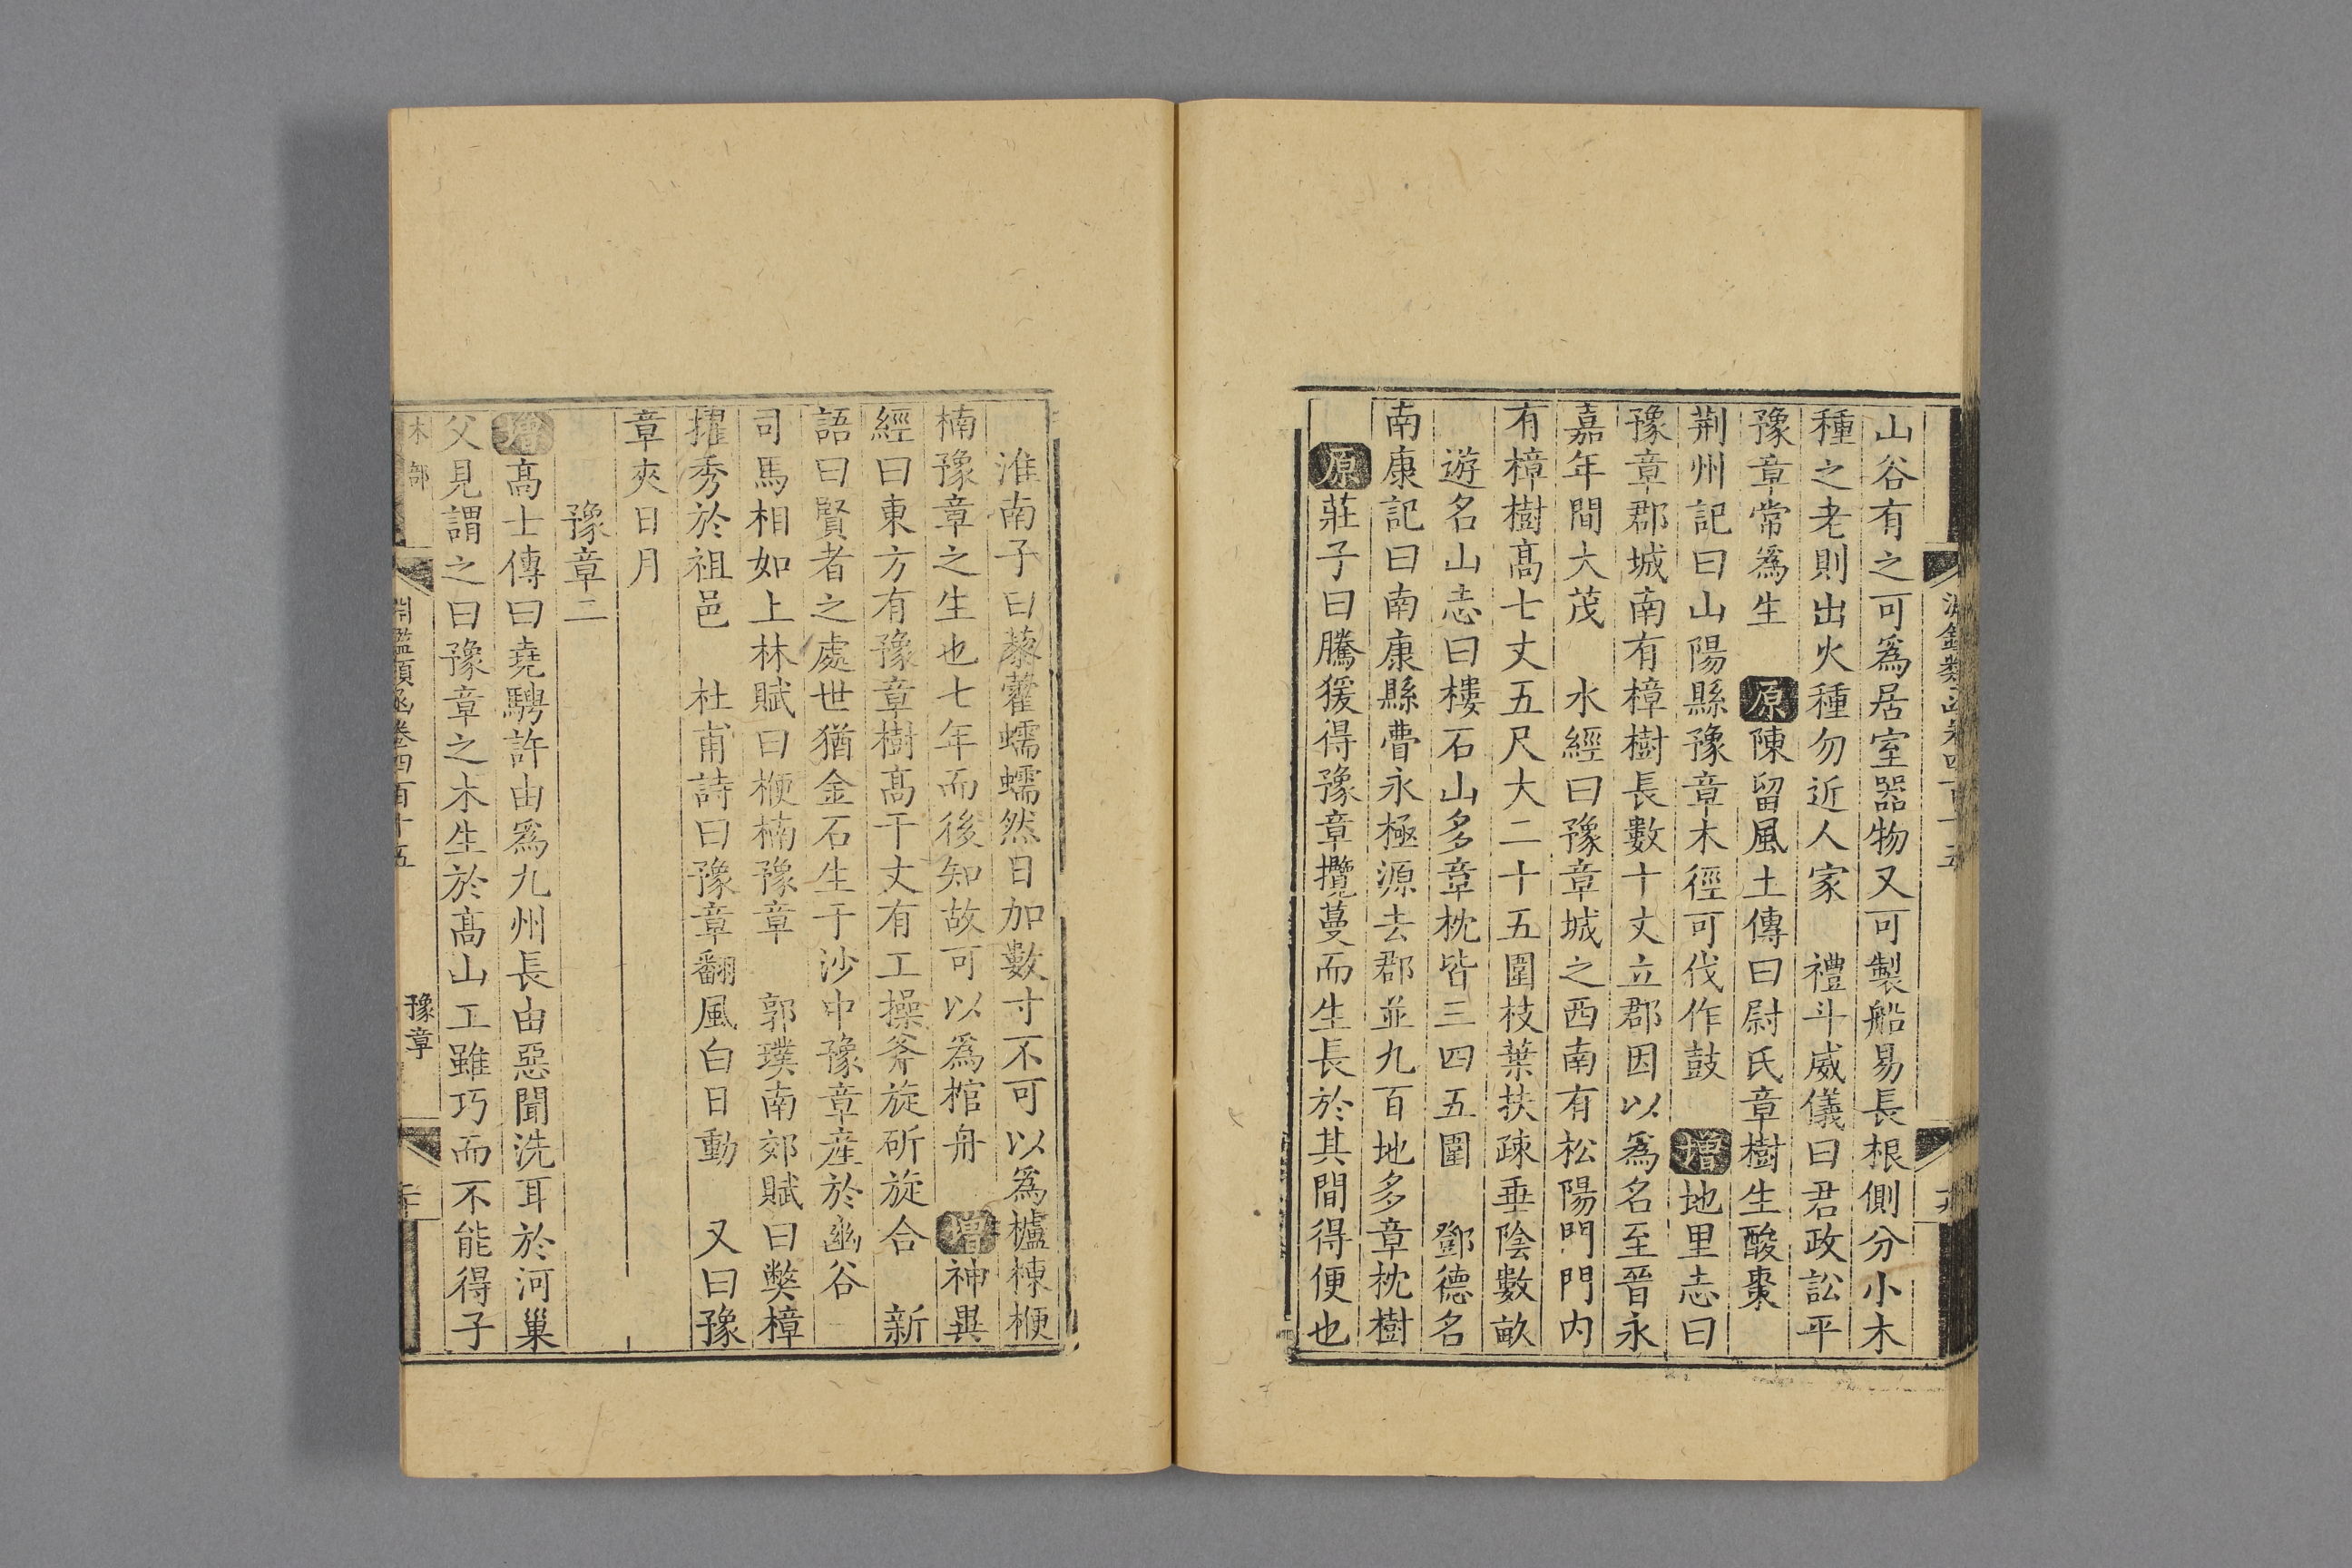 山谷有之可爲居室器物又可製船易長根側分小木
種之老則出火種勿近人家　禮斗威儀曰君政訟平
豫章常爲生　原陳留風土傳曰尉氏章樹生酸棗
荆州記曰山陽縣豫章木徑可伐作鼓　增地里志曰
豫章郡城南有樟樹長數十丈立郡因以爲名至晉永
嘉年間大茂　水經曰豫章城之西南有松陽門門内
有樟樹高七丈五尺大二十五圍枝葉扶疎垂陰數畝
遊名山志曰樓石山多章枕皆三四五圍　鄧德名
南康記曰南康縣曹永極源去郡並九百地多章枕樹
原莊子曰騰猨得豫章攬蔓而生長於其間得便也
淮南子曰藜藿蠕蠕然日加數寸不可以爲櫨棟楩
楠豫章之生也七年而後知故可以爲棺舟　增神異
經曰東方有豫章樹高千丈有工操斧旋斫旋合　新
語曰賢者之處世猶金石生于沙中豫章産於幽谷
司馬相如上林賦曰楩楠豫章　郭璞南郊賦曰獘樟
擢秀於祖邑　杜甫詩曰豫章翻風白日動　又曰豫
章夾日月
豫章二
增高士傳曰堯聘許由爲九州長由惡聞洗耳於河巢
父見謂之曰豫章之木生於高山工雖巧而不能得子
木部　淵鑑類函卷四百十五　豫章